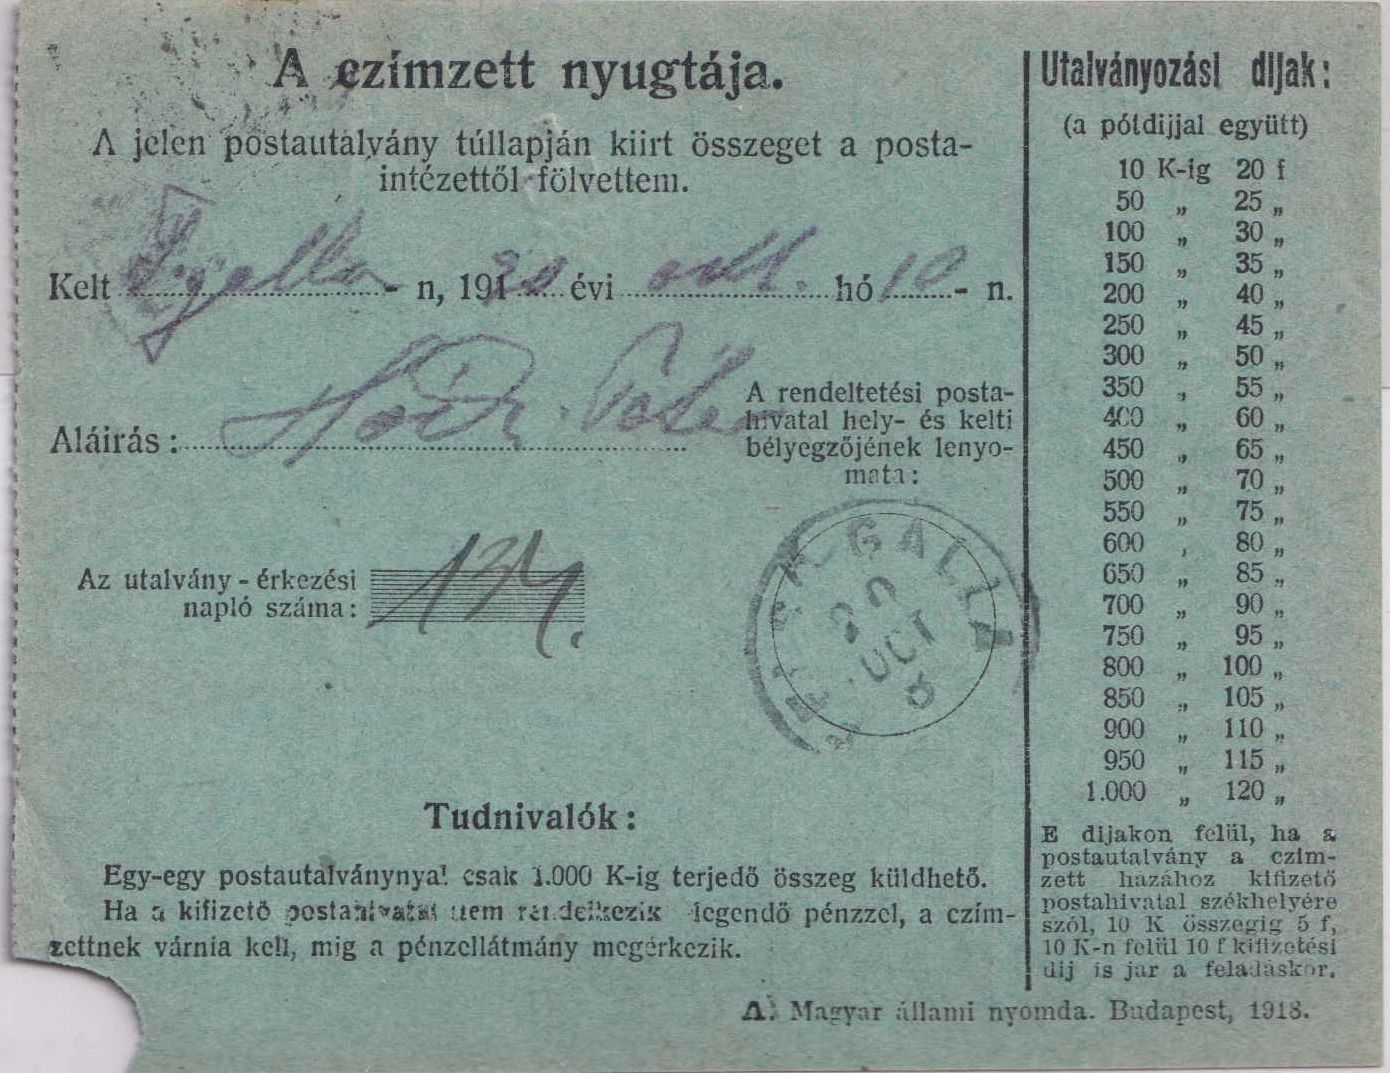 A czímzett nyugtája.
A jelen postautalvány túllapján kiirt összeget a posta-
intézettől fölvettem.
Kelt Ógyalla - n, 1920 évi okt. hó 10 - n.
Aláirás :
A rendeltetési posta-
hivatal hely- és kelti
bélyegzőjének lenyo-
mata :
Az utalvány - érkezési
napló száma : 134.
GALLA
20
OCT
8
Tudnivalók :
Egy-egy postautalványnyal csak 1.000 K-ig terjedő összeg küldhető.
Ha a kifizető postahivatal nem rendelkezik elegendő pénzzel, a czím-
zettnek várnia kell, mig a pénzellátmány megérkezik.
Utalványozási dijak :
(a pótdijjal együtt)
10 K-ig 20 f
50 „ 25 „
100 „ 30 „
150 „ 35 „
200 „ 40 „
250 „ 45 „
300 „ 50 „
350 „ 55 „
400 „ 60 „
450 „ 65 „
500 „ 70 „
550 „ 75 „
600 „ 80 „
650 „ 85 „
700 „ 90 „
750 „ 95 „
800 „ 100 „
850 „ 105 „
900 „ 110 „
950 „ 115 „
1.000 „ 120 „
E dijakon felül, ha a
postautalvány a czím-
zett hazához kifizető
postahivatal székhelyére
szól, 10 K összegig 5 f,
10 K-n felül 10 f kifizetési
dij is jár a feladáskor.
Magyar állami nyomda. Budapest, 1918.